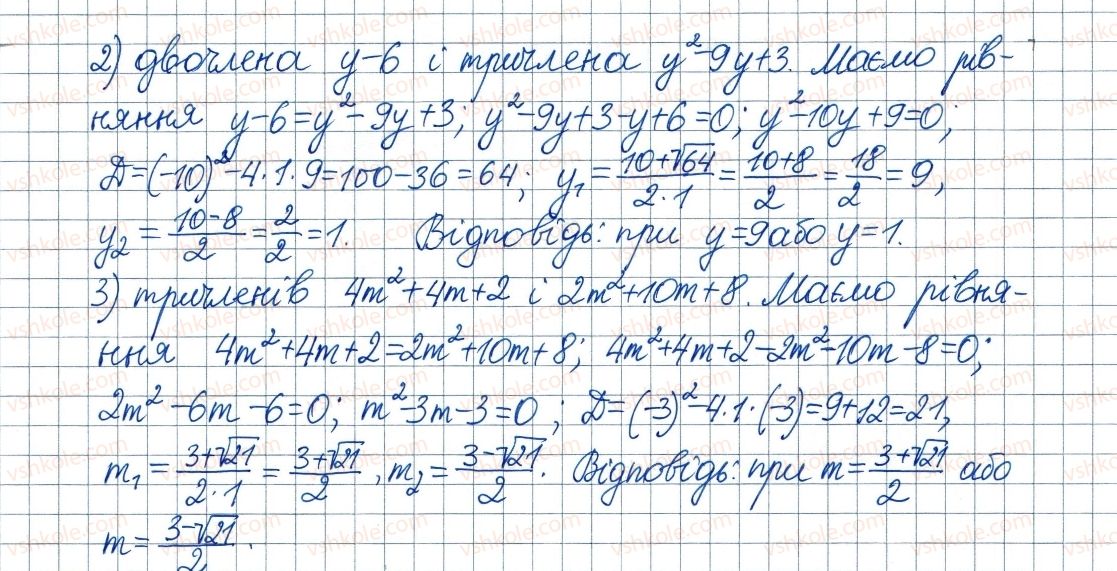 2) двочлена y-6 і тричлена y²-9y+3. Маємо рів-
няння y-6=y²-9y+3; y²-9y+3-y+6=0; y²-10y+9=0;
D=(-10)²-4·1·9=100-36=64; y₁=(10+√64)/(2·1)=(10+8)/2=18/2=9,
y₂=(10-8)/2=2/2=1. Відповідь: при y=9 або y=1.
3) тричленів 4m²+4m+2 і 2m²+10m+8. Маємо рівня-
ння 4m²+4m+2=2m²+10m+8; 4m²+4m+2-2m²-10m-8=0;
2m²-6m-6=0; m²-3m-3=0; D=(-3)²-4·1·(-3)=9+12=21,
m₁=(3+√21)/(2·1)=(3+√21)/2, m₂=(3-√21)/2. Відповідь: при m=(3+√21)/2 або
m=(3-√21)/2.